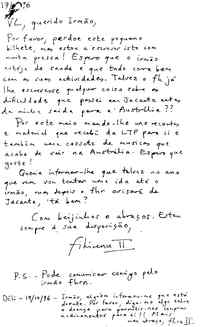 19/ /96
VC, querido Irmão,
Por favor, perdoe este pequeno
bilhete, mas estou a escrever isto com
muita pressa! Espero que o irmão
esteja de saúde e que tudo corra bem
com as suas actividades. Talvez o já
lhe escrevesse qualquer coisa sobre as
dificuldade que passei em Jacarta antes
da minha saída para a Austrália??
Por este meio mando-lhe uns recortes
e material que recebi da LTP para si e
também uma cassete de musicas que
acabo de sair na Austrália. Espero que
goste!
Queria informar-lhe que talvez no ano
que vem vou tentar uma ida até o
irmão, mas depois o
Jacarta, 'tá bem?
Com beijinhos e abraços. Estou
sempre à sua disposição,
II
P.S. - Pode comunicar comigo pelo
irmão
19/10/96 - Irmão, alguém informou-me que está
doente. Por favor, diga-me algo sobre
a doença para
medicamentos
um abraço, II